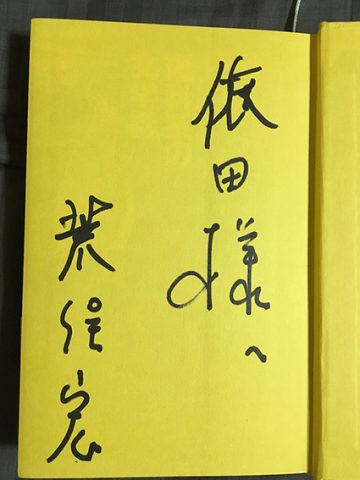 依田様へ
荒俣宏